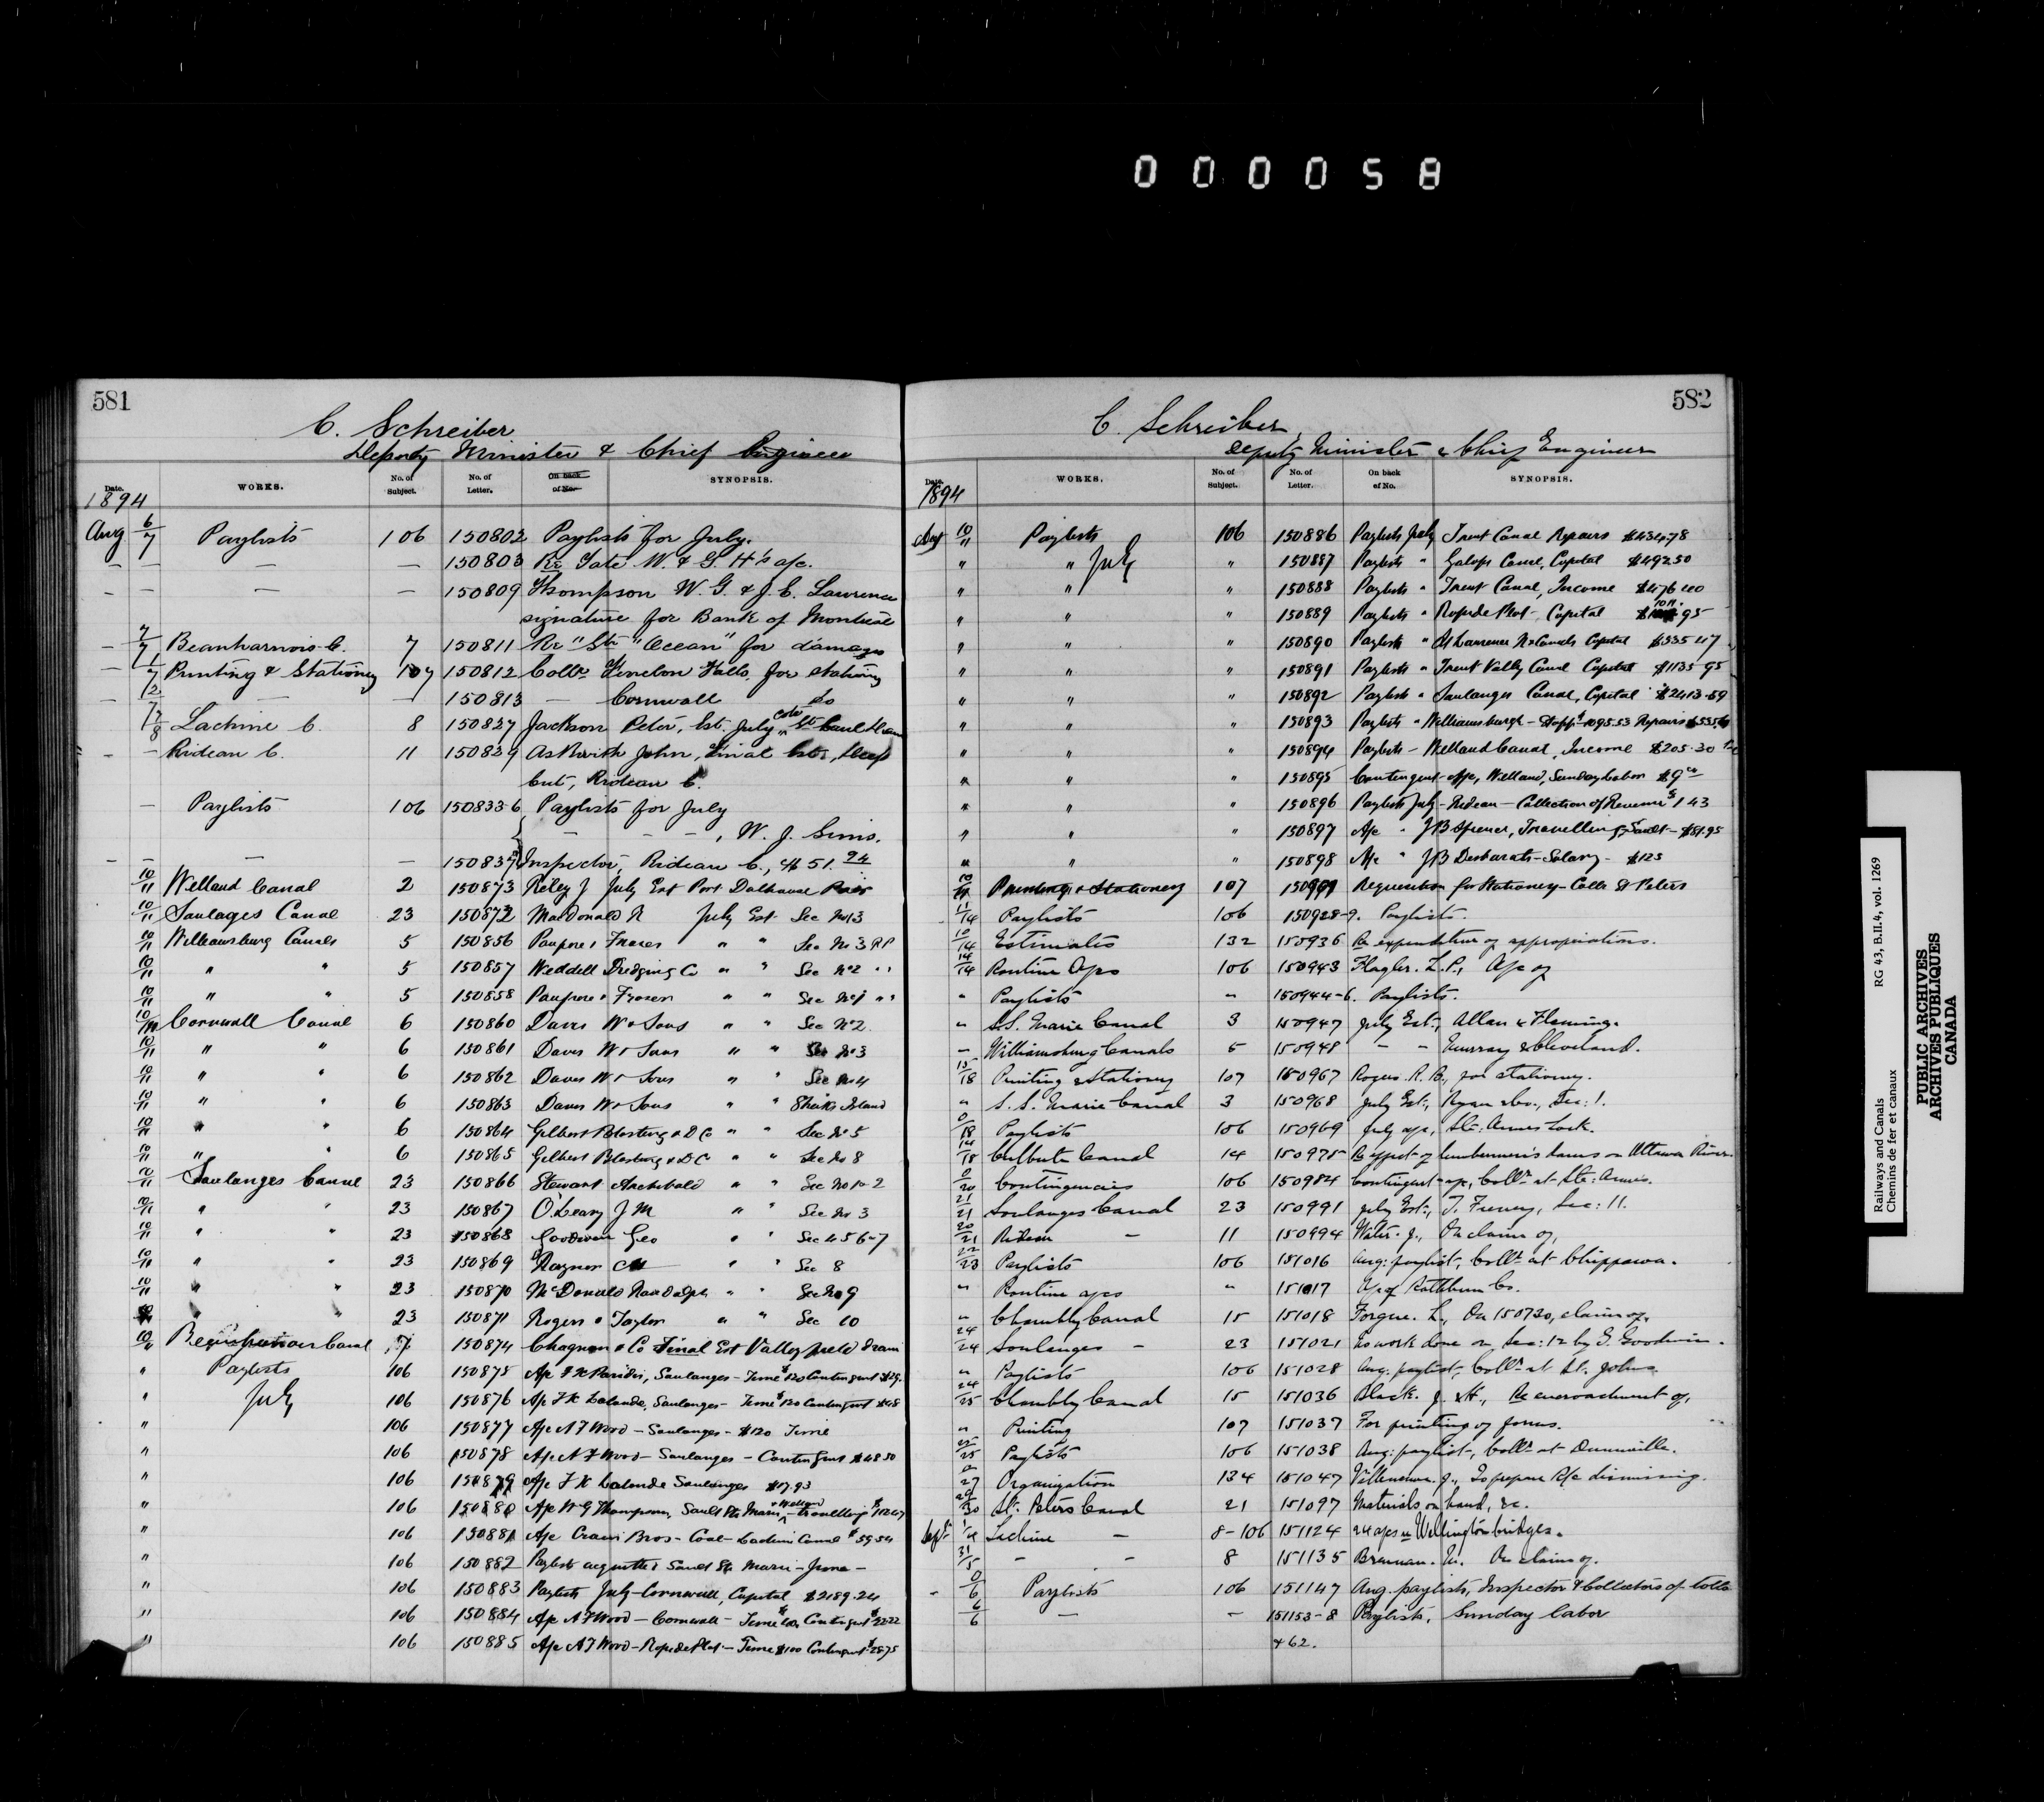 000058
581
C. Schreiber
Deputy Minister & Chief Engineer
Date. WORKS. No. of Subject. No. of Letter. On back of No. SYNOPSIS.
1894
Aug 6/7 Paylists 106 150802 Paylists for July.
— — — — 150803 Re Tate W. & G. H's a/c.
— — — — 150809 Thompson W. G. & J. C. Lawrence
signature for Bank of Montreal
— 7/7 Beauharnois C. 7 150811 Re "Str "Ocean" for damages
— Printing & Stationery 107 150812 Collr Fenelon Falls, for stationery
— — 150813 — Cornwall do
7/8 Lachine C. 8 150827 Jackson Peter, Est. July, Cote St Paul
- — Rideau C. 11 150829 Askwith John, Final Est, Deep
Cut, Rideau C.
— Paylists 106 150833-6 Paylists for July
— — —, W. J. Sims.
— — — — 150837 Inspector, Rideau C., $51.24
10/11 Welland Canal 2 150873 Riley J July Est Port Dalhousie Piers
10/11 Soulages Canal 23 150872 MacDonald R July Est Sec No 13
10/11 Williamsburg Canals 5 150856 Poupore & Fraser " " Sec No 3 RP
10/11 " " 5 150857 Weddell Dredging Co " " Sec No 2 " "
10/11 " " 5 150858 Poupore & Fraser " " Sec No 1 " "
10/11 Cornwall Canal 6 150860 Davis W & Sons " " Sec No 2
10/11 " " 6 150861 Davis W & Sons " " Sec No 3
10/11 " " 6 150862 Davis W & Sons " " Sec No 4
10/11 " " 6 150863 Davis W & Sons " " Sheiks Island
10/11 " " 6 150864 Gilbert Blasting & D Co " " Sec No 5
10/11 " " 6 150865 Gilbert Blasting & D C " " Sec No 8
10/11 Soulanges Canal 23 150866 Stewart Archibald " " Sec No 1-2
10/11 " " 23 150867 O'Leary J M " " Sec No 3
10/11 " " 23 150868 Goodwin Geo " " Sec 4 5 6-7
10/11 " " 23 150869 Raynor " " Sec 8
10/11 " " 23 150870 McDonald Randolph " " Sec No 9
" " 23 150871 Rogers & Taylor " " Sec 10
10/11 Canal 7 150874 Chagnon & Co Final Est Valleyfield Drain
" Paylists 106 150875 A/c Soulanges - Time $120 Contingent
" July 106 150876 A/c Lalonde, Soulanges - Time $120 Contingent $
" 106 150877 A/c A F Wood - Soulanges - $120 Time
" 106 150878 A/c A F Wood - Soulanges - Contingent $48.50
" 106 150879 A/c Lalonde Soulanges $17.93
" 106 150880 A/c W G Thompson, Sault Ste Marie & Welland - travelling
" 106 150881 A/c Bros - Coal - Lachine Canal $59.54
" 106 150882 Paylists Sault Ste Marie - June -
" 106 150883 Paylists July - Cornwall, Capital $2189.24
" 106 150884 A/c A F Wood - Cornwall - Time Contingent $22.22
" 106 150885 A/c A F Wood - Rapide Plat - Time $100 Contingent $28.75
582
C. Schreiber,
Deputy Minister & Chief Engineer
Date. WORKS. No. of Subject. No. of Letter. On back of No. SYNOPSIS.
1894
Aug 10/11 Paylists 106 150886 Paylists July Trent Canal Repairs $434.78
" " July " 150887 Paylists " Galops Canal, Capital $492.50
" " " 150888 Paylists " Trent Canal, Income $476.00
" " " 150889 Paylists " Rapide Plat - Capital
" " " 150890 Paylists " St Lawrence R & Canals Capital $335.47
" " " 150891 Paylists " Trent Valley Canal Capital $1135.95
" " " 150892 Paylists " Soulanges Canal, Capital $2413.59
" " " 150893 Paylists " Williamsburgh - Staff $1095.53 Repairs
" " " 150894 Paylists - Welland Canal, Income $205.30
" " " 150895 Contingent a/c, Welland, Sunday Labor $9
" " " 150896 Paylists July - Rideau - Collection of Revenue $143
" " " 150897 A/c " J B Spence, Travelling, Sault - $51.95
" " " 150898 A/c " J B Desbarats - Salary - $125
10/11 Printing & Stationery 107 Requisition for Stationery - Collr St Peters
11/14 Paylists 106 150928-9. Paylists.
10/14 Estimates 132 150936 Re expenditure of appropriations.
14/14 Routine A/cs 106 150943 Flagler. Z. P., A/c of
" Paylists " 150944-6. Paylists.
" S.S. Marie Canal 3 150947 July Est., Allan & Fleming.
— Williamsburg Canals 5 150948 — — Murray & Cleveland.
15/18 Printing & Stationery 107 150967 Rogers. R. B., for stationery.
" S. S. Marie Canal 3 150968 July Est., Ryan & Co., Sec: 1.
0/18 Paylists 106 150969 July a/c, Ste: Annes Lock.
14/18 Culbute Canal 14 150975 Re effect of lumbermen's dams on Ottawa River
0/20 Contingencies 106 150984 Contingent a/c, Collr at Ste: Annes.
21/21 Soulanges Canal 23 150991 July Est., T. Feeney, Sec: 11.
20/21 Rideau — 11 150994 Water. J., On claim of,
22/23 Paylists 106 151016 Aug: paylist, Collr at Chippawa.
" Routine a/cs " 151017 A/c of Rathbun Co.
" Chambly Canal 15 151018 Forgue. L., On 150730, claim of,
24/24 Soulanges — 23 151021 work done on Sec: 12 by G. Goodwin.
" Paylists 106 151028 Aug. paylist, Collr at St. Johns
24/25 Chambly Canal 15 151036 Black. J. & H., Re encroachment of,
" Printing 107 151037 For printing of forms.
25/25 Paylists 106 151038 Aug: paylist, Collr at Dunnville.
0/27 Organization 134 151047 Villeneuve. J., To prepare O/c dismissing.
St. Peters Canal 21 151097 Materials on hand, &c.
Sept Lachine — 8-106 151124 a/cs Wellington bridges.
31/5 — — 8 151135 Brennan. M. On claim of.
- 0/6 Paylists 106 151147 Aug. paylists, Inspector & Collectors of tolls
6/6 — — 151153-8 Paylists, Sunday labor
& 62.
Railways and Canals
Chemins de fer et canaux
RG 43, B.II.4, vol. 1269
PUBLIC ARCHIVES
ARCHIVES PUBLIQUES
CANADA